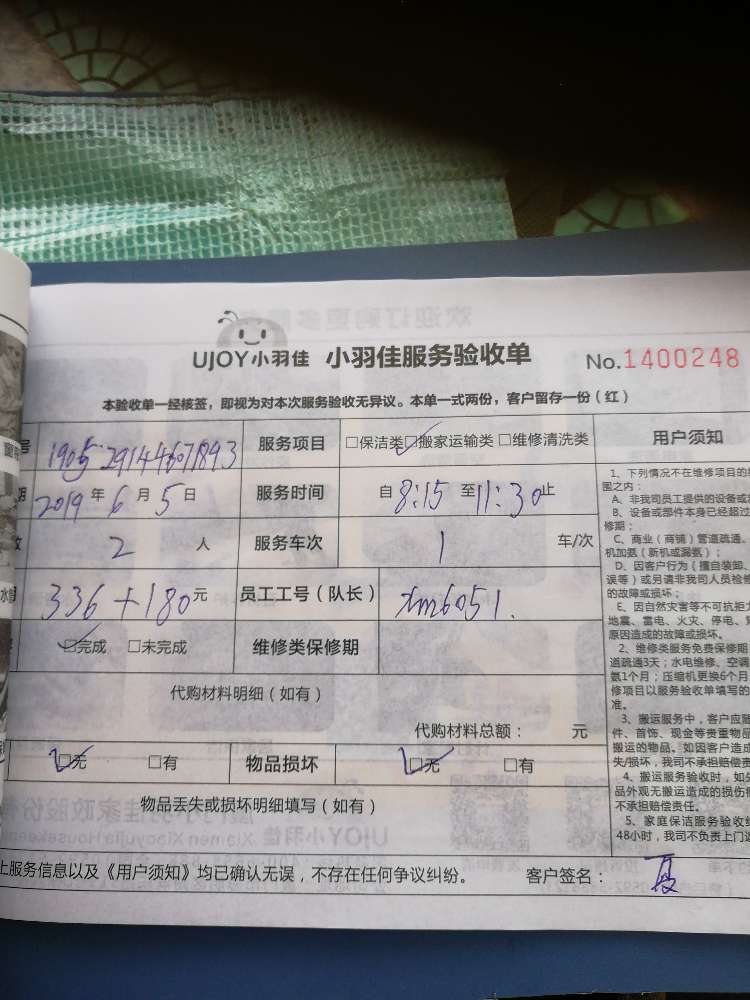 UJOY小羽佳 小羽佳服务验收单 No.1400248
本验收单一经核签，即视为对本次服务验收无异议。本单一式两份，客户留存一份（红）
号 服务项目 □保洁类 □搬家运输类 □维修清洗类 用户须知
2019年6月5日 服务时间 自8:15至11:30止
2人 服务车次 1 车/次
336+180元 员工工号（队长） xm6051.
□完成 □未完成 维修类保修期
代购材料明细（如有）
代购材料总额： 元
□无 □有 物品损坏 □无 □有
物品丢失或损坏明细填写（如有）
上服务信息以及《用户须知》均已确认无误，不存在任何争议纠纷。 客户签名：夏
1、下列情况不在维修项目的
围之内：
A、非我司员工提供的设备或
B、设备或部件本身已经超过
修期；
C、商业（商铺）管道疏通、
机加氨（新机或漏氨）；
D、因客户行为（擅自装卸、
误等）或另请非我司人员检修
的故障或损坏；
E、因自然灾害等不可抗拒
地震、雷电、火灾、停电、
原因造成的故障或损坏。
2、维修类服务免费保修期
道疏通3天；水电维修、空调
氨1个月；压缩机更换6个月
修项目以服务验收单填写的
准。
3、搬运服务中，客户应随
件、首饰、现金等贵重物品
搬运的物品。如因客户造成
失/损坏，我司不承担赔偿责
4、搬运服务验收时，如
品外观无搬运造成的损伤
不承担赔偿责任。
5、家庭保洁服务验收
48小时，我司不负责上门